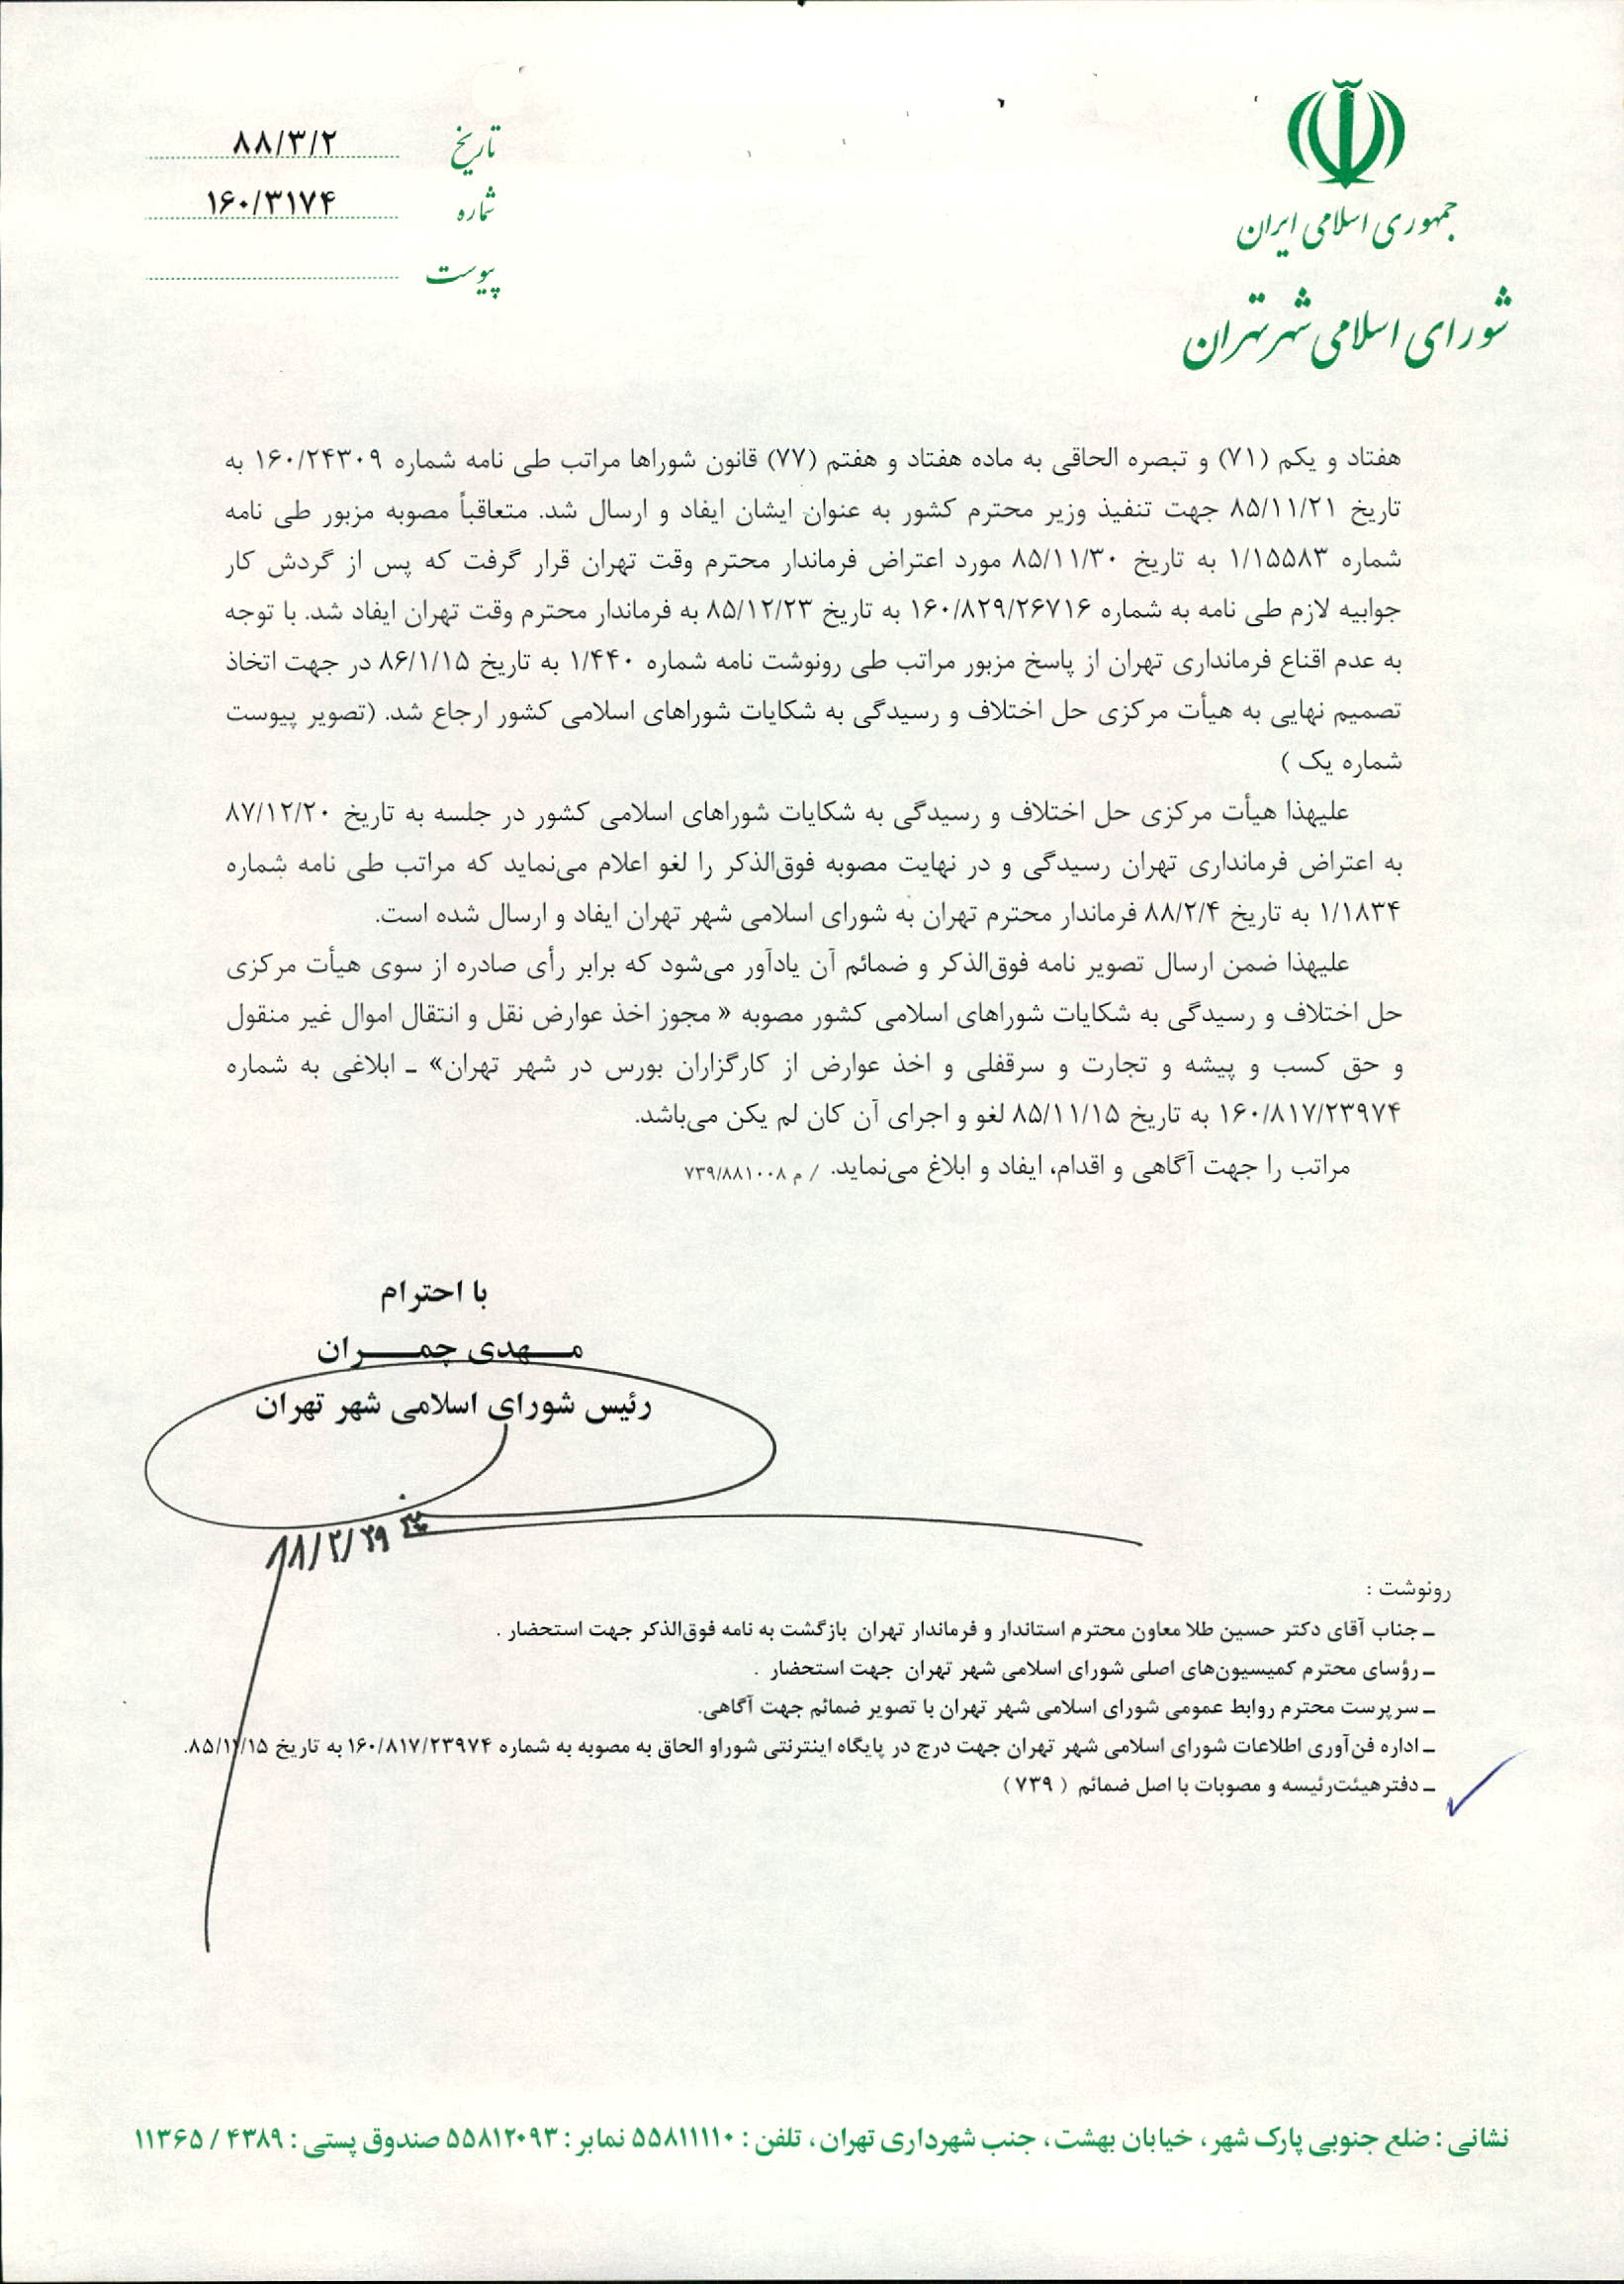 جمهوری اسلامی ایران
شورای اسلامی شهر تهران
تاریخ ۸۸/۳/۲
شماره ۱۶۰/۳۱۷۴
پیوست
هفتاد و یکم (۷۱) و تبصره الحاقی به ماده هفتاد و هفتم (۷۷) قانون شوراها مراتب طی نامه شماره ۱۶۰/۲۴۳۰۹ به
تاریخ ۸۵/۱۱/۲۱ جهت تنفیذ وزیر محترم کشور به عنوان ایشان ایفاد و ارسال شد. متعاقباً مصوبه مزبور طی نامه
شماره ۱/۱۵۵۸۳ به تاریخ ۸۵/۱۱/۳۰ مورد اعتراض فرماندار محترم وقت تهران قرار گرفت که پس از گردش کار
جوابیه لازم طی نامه به شماره ۱۶۰/۸۲۹/۲۶۷۱۶ به تاریخ ۸۵/۱۲/۲۳ به فرماندار محترم وقت تهران ایفاد شد. با توجه
به عدم اقناع فرمانداری تهران از پاسخ مزبور مراتب طی رونوشت نامه شماره ۱/۴۴۰ به تاریخ ۸۶/۱/۱۵ در جهت اتخاذ
تصمیم نهایی به هیأت مرکزی حل اختلاف و رسیدگی به شکایات شوراهای اسلامی کشور ارجاع شد. (تصویر پیوست
شماره یک )
علیهذا هیأت مرکزی حل اختلاف و رسیدگی به شکایات شوراهای اسلامی کشور در جلسه به تاریخ ۸۷/۱۲/۲۰
به اعتراض فرمانداری تهران رسیدگی و در نهایت مصوبه فوق‌الذکر را لغو اعلام می‌نماید که مراتب طی نامه شماره
۱/۱۸۳۴ به تاریخ ۸۸/۲/۴ فرماندار محترم تهران به شورای اسلامی شهر تهران ایفاد و ارسال شده است.
علیهذا ضمن ارسال تصویر نامه فوق‌الذکر و ضمائم آن یادآور می‌شود که برابر رأی صادره از سوی هیأت مرکزی
حل اختلاف و رسیدگی به شکایات شوراهای اسلامی کشور مصوبه « مجوز اخذ عوارض نقل و انتقال اموال غیر منقول
و حق کسب و پیشه و تجارت و سرقفلی و اخذ عوارض از کارگزاران بورس در شهر تهران» ـ ابلاغی به شماره
۱۶۰/۸۱۷/۲۳۹۷۴ به تاریخ ۸۵/۱۱/۱۵ لغو و اجرای آن کان لم یکن می‌باشد.
مراتب را جهت آگاهی و اقدام، ایفاد و ابلاغ می‌نماید. / م ۷۳۹/۸۸۱۰۰۸
با احترام
مـهدی چمـران
رئیس شورای اسلامی شهر تهران
۸۸/۲/۲۹
رونوشت :
ـ جناب آقای دکتر حسین طلا معاون محترم استاندار و فرماندار تهران بازگشت به نامه فوق‌الذکر جهت استحضار .
ـ رؤسای محترم کمیسیون‌های اصلی شورای اسلامی شهر تهران جهت استحضار .
ـ سرپرست محترم روابط عمومی شورای اسلامی شهر تهران با تصویر ضمائم جهت آگاهی.
ـ اداره فن‌آوری اطلاعات شورای اسلامی شهر تهران جهت درج در پایگاه اینترنتی شوراو الحاق به مصوبه به شماره ۱۶۰/۸۱۷/۲۳۹۷۴ به تاریخ ۸۵/۱۱/۱۵.
ـ دفترهیئت‌رئیسه و مصوبات با اصل ضمائم ( ۷۳۹ )
نشانی : ضلع جنوبی پارک شهر، خیابان بهشت، جنب شهرداری تهران، تلفن : ۵۵۸۱۱۱۱۰ نمابر : ۵۵۸۱۲۰۹۳ صندوق پستی : ۴۳۸۹ / ۱۱۳۶۵